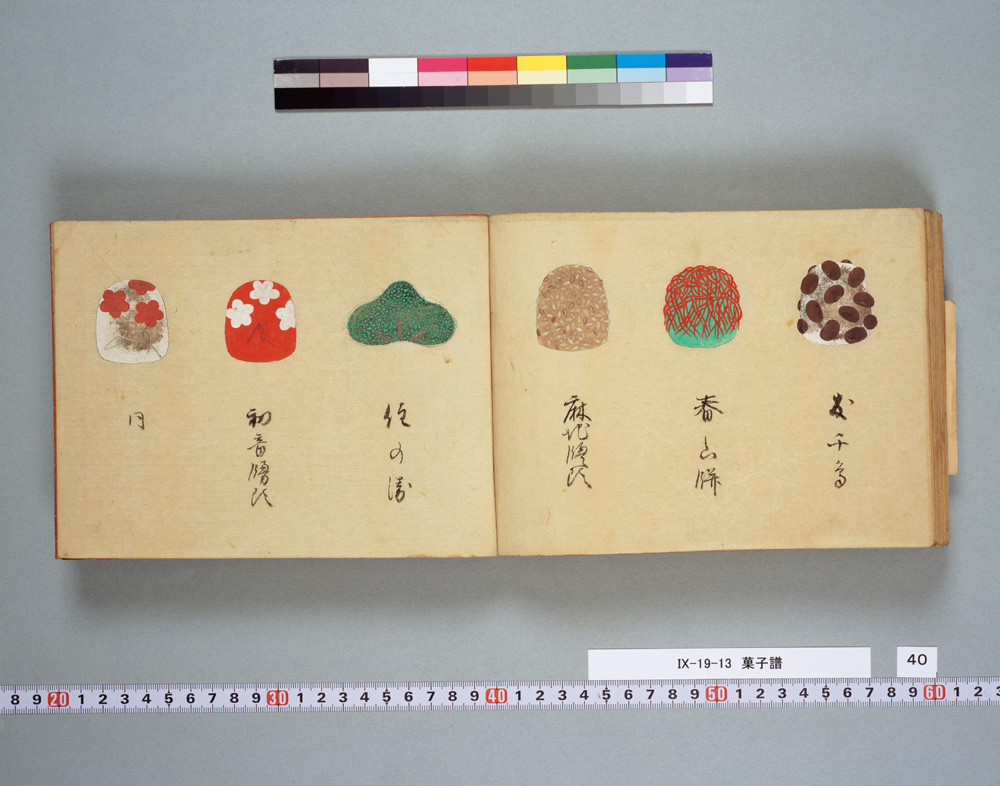 友千鳥
麻地饅頭
初音饅頭
同
IX-19-13 菓子譜
40
8 9 20 1 2 3 4 5 6 7 8 9 30 1 2 3 4 5 6 7 8 9 40 1 2 3 4 5 6 7 8 9 50 1 2 3 4 5 6 7 8 9 60 1 2 3